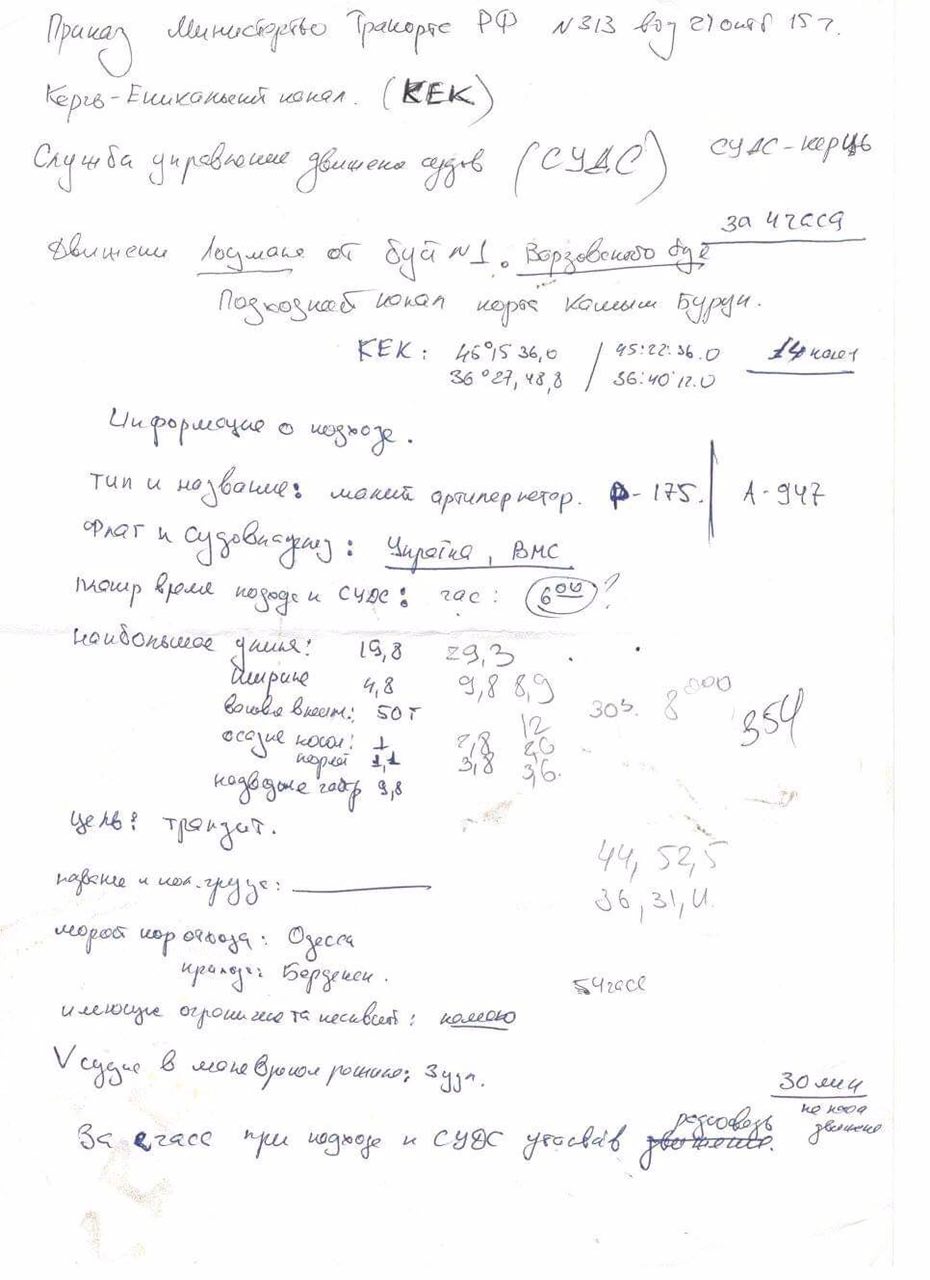 Приказ Министерство Транорте РФ N313 вод 21 октб 15 г.
Керчь-Еникальский канал. (КЕК)
Служба управление движена судов (СУДС) СУДС-Керць
за 4 часа
Движени Лоцмане от буй N1. Варзовского буе
Подходной канал порта Камыш Бурун.
КЕК: 45°15 36,0 / 45:22:36.0
36°27,48,8 / 36:40:12.0
Информацие о подходе.
тип и название: малий артилер катер. Р-175. | А-947
Флаг и судовладец: Україна, ВМС
планир время пододе к СУДС: час: 6 00 ?
наибольшае длина: 19,8 29,3
ширине 4,8 9,8 8,9
50т 12
30з. 8 000 354
осадие носом: 1 2,8 26
кормой 1,1 3,8 3,6.
надводне габр 9,8
цель: транзит.
44, 52,5
название и кол. груза:
36, 31, 4.
морской пор отхода: Одесса
прихода: Бердянск.
4 часе
имеющие огранич
V судне в маневреном режиме: 3 узл.
30 мин
За часс при подходе к СУДС
не
движене